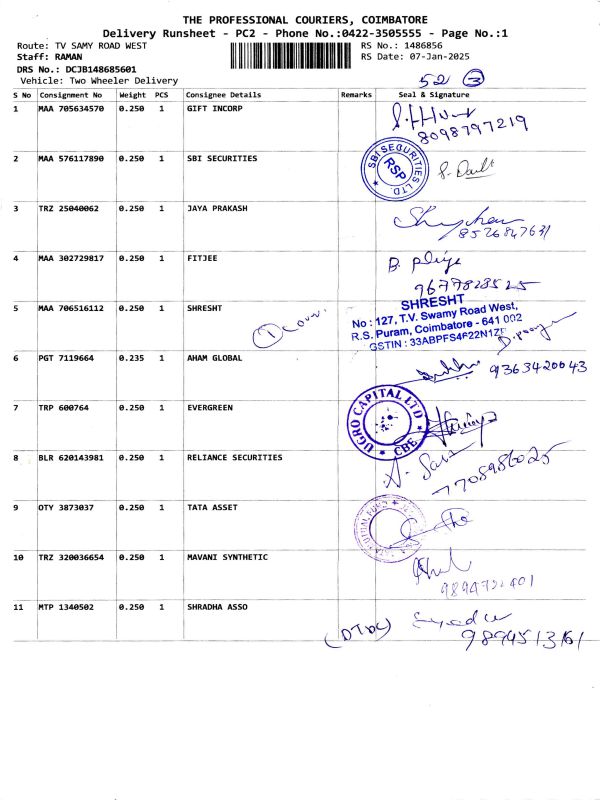 THE PROFESSIONAL COURIERS, COIMBATORE
Delivery Runsheet - PC2 - Phone No.:0422-3505555 - Page No.:1
Route: TV SAMY ROAD WEST RS No.: 1486856
Staff: RAMAN RS Date: 07-Jan-2025
DRS No.: DCJB148685601
Vehicle: Two Wheeler Delivery
52 3
S No Consignment No Weight PCS Consignee Details Remarks Seal & Signature
1 MAA 705634570 0.250 1 GIFT INCORP
8098797219
2 MAA 576117890 0.250 1 SBI SECURITIES
SBI SECURITIES LTD
RSP
3 TRZ 25040062 0.250 1 JAYA PRAKASH
8526847631
4 MAA 302729817 0.250 1 FITJEE
B. Priya
9677828525
5 MAA 706516112 0.250 1 SHRESHT
SHRESHT
No : 127, T.V. Swamy Road West,
R.S. Puram, Coimbatore - 641 002
GSTIN : 33ABPFS4622N1ZF
6 PGT 7119664 0.235 1 AHAM GLOBAL
9363420043
7 TRP 600764 0.250 1 EVERGREEN
UGRO CAPITAL LTD
CBE
8 BLR 620143981 0.250 1 RELIANCE SECURITIES
7708986025
9 OTY 3873037 0.250 1 TATA ASSET
10 TRZ 320036654 0.250 1 MAVANI SYNTHETIC
11 MTP 1340502 0.250 1 SHRADHA ASSO
(DTDC)
9894513161